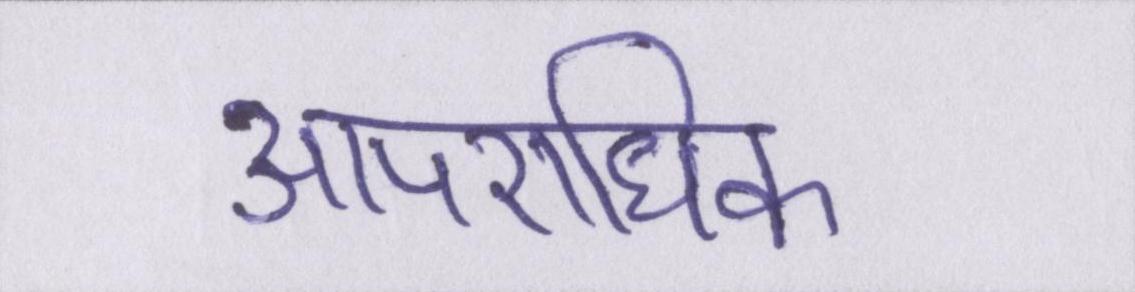 आपराधिक